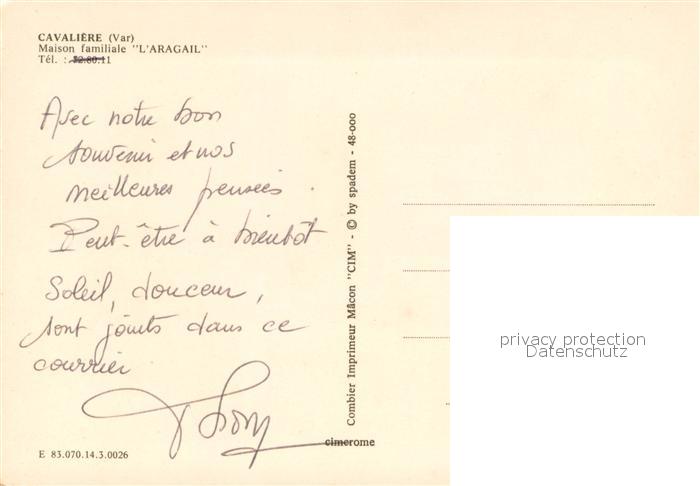 CAVALIÈRE (Var)
Maison familiale "L'ARAGAIL"
Tél. : 32.80.11
Avec notre bon
souvenir et nos
meilleures pensées.
Peut-être à bientôt
Soleil, douceur,
sont joints dans ce
courrier
E 83.070.14.3.0026
Combier Imprimeur Mâcon "CIM" - © by spadem - 48-000
cimcrome
privacy protection
Datenschutz